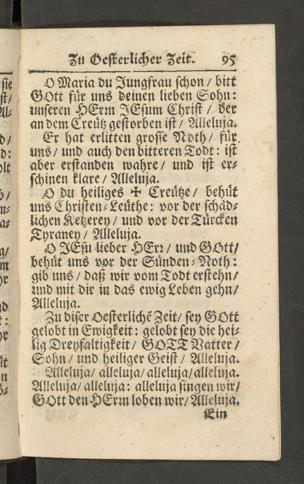 Zu Oesterlicher Zeit. 95
O Maria du Jungfrau schon / bitt
GOtt für uns deinen lieben Sohn:
unseren HErm JEsum Christ / der
an dem Creütz gestorben ist / Alleluja.
Er hat erlitten grosse Noth / für
uns / und auch den bitteren Todt: ist
aber erstanden wahre / und ist er-
schinen klare / Alleluja.
O du heiliges ✠ Creütze / behüt
uns Christen-Leüthe: vor der schäd-
lichen Ketzerey / und vor der Türcken
Tyraney / Alleluja.
O JEsu lieber HErr / und GOtt /
behüt uns vor der Sünden-Noth:
gib uns / daß wir vom Todt erstehn /
und mit dir in das ewig Leben gehn /
Alleluja.
Zu diser Oesterlichē Zeit / sey GOtt
gelobt in Ewigkeit: gelobt sey die hei-
lig Dreyfaltigkeit / GOTT Vatter /
Sohn / und heiliger Geist / Alleluja.
Alleluja / alleluja / alleluja / alleluja.
Alleluja / alleluja: alleluja singen wir /
GOtt den HErm loben wir / Alleluja.
Ein